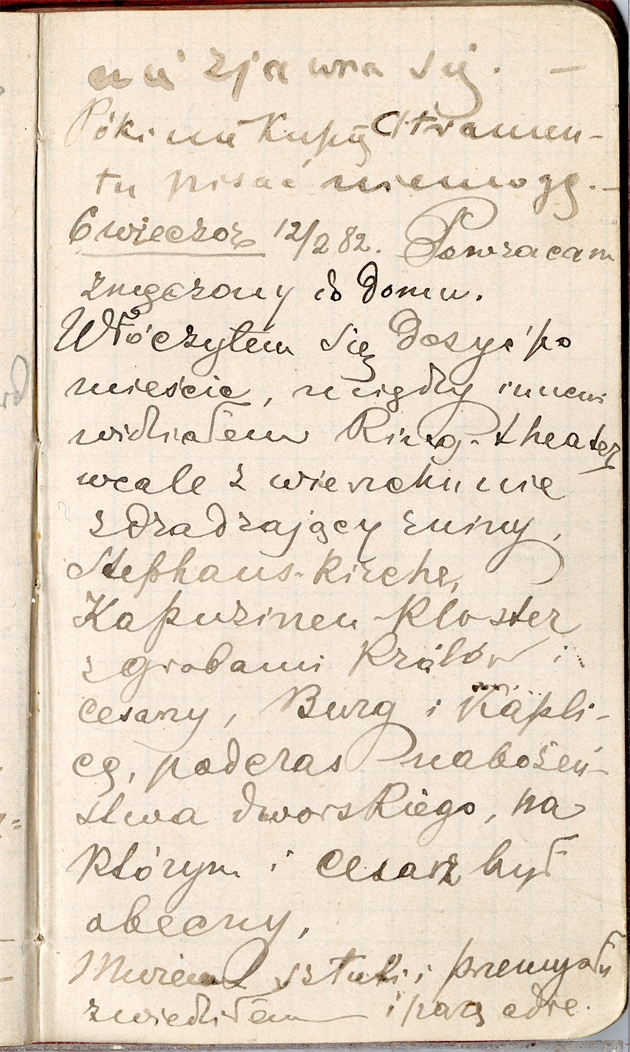 nie zjawia się. —
Póki nie kupię Atramen-
tu pisać niemogę. —
6 wieczor 12/2 82. Powracam
zmęczony do domu.
Włóczyłem się dosyć po
mieście, między innemi
widziałem Ring-theater
wcale z wierzchu nie
zdradzający ruiny,
Stephans-Kirche,
Kapuziner-Kloster
z grobami Królów i
cesarzy, Burg i Kapli-
cę, podczas nabożeń-
stwa dworskiego, na
którym i Cesarz był
obecny,
Muzeum sztuki i przemysłu
zwiedziłem i parę